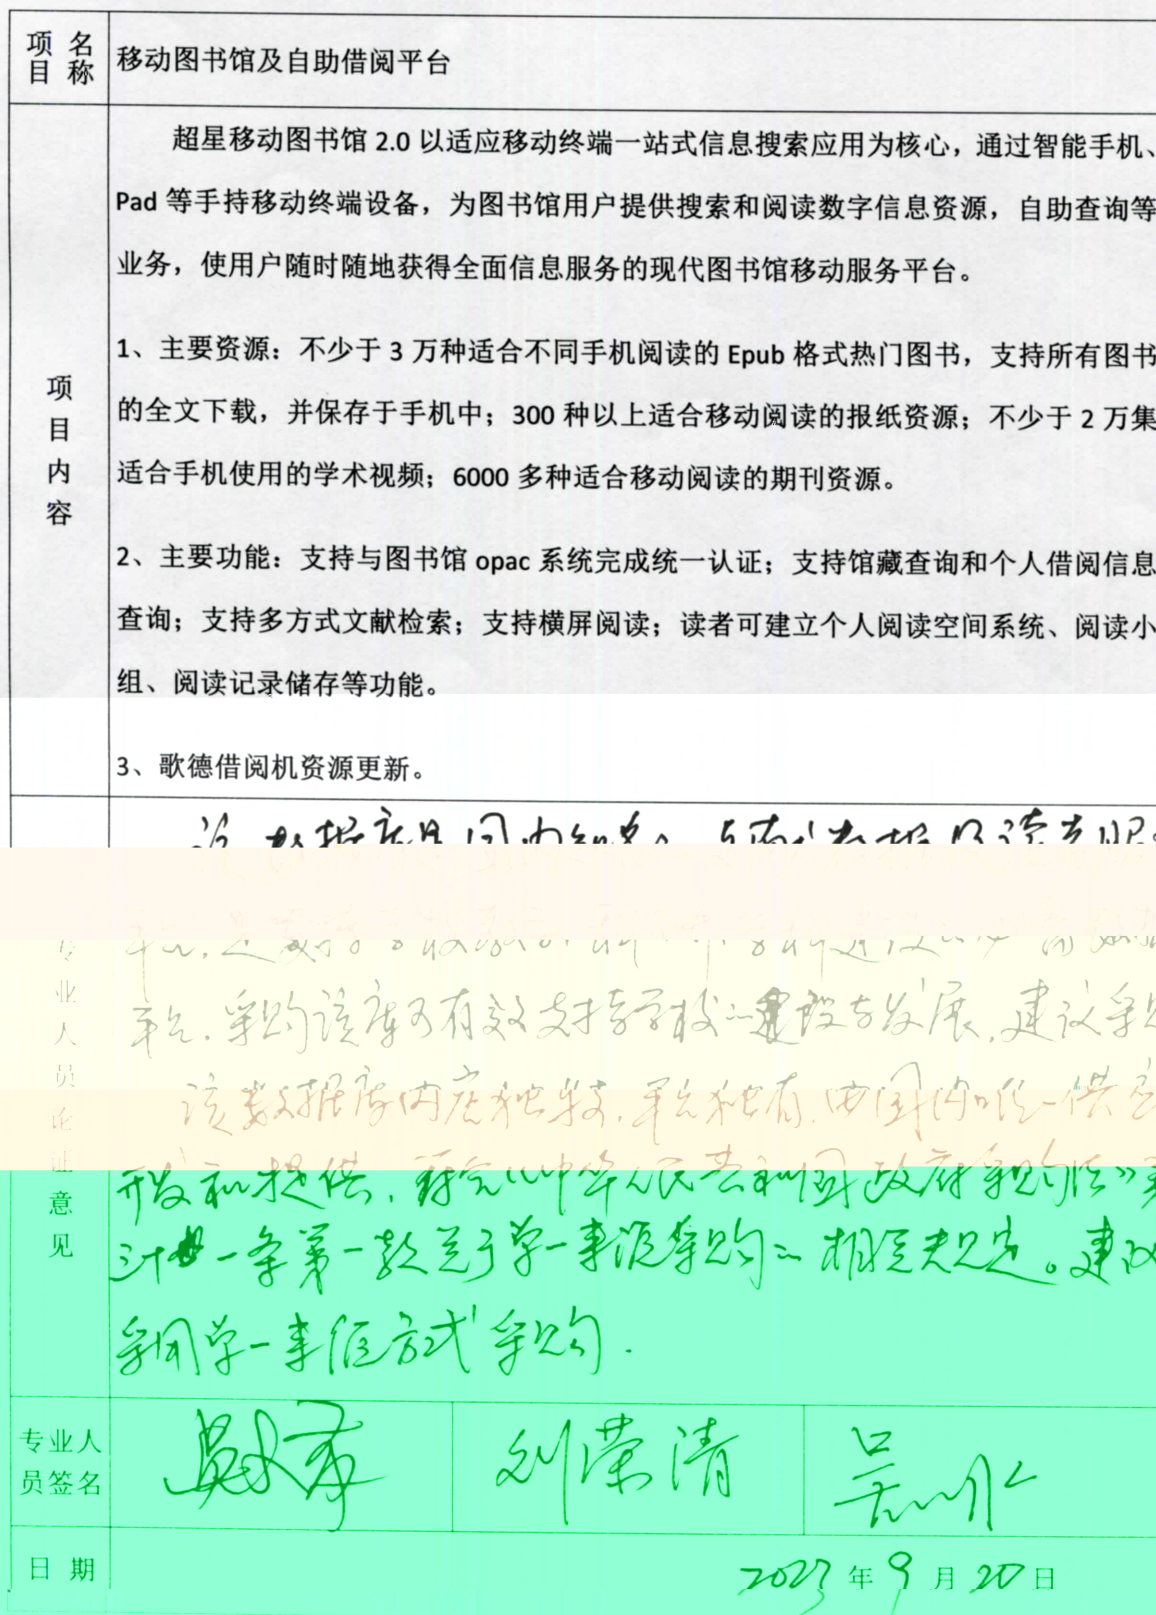 项目名称
移动图书馆及自助借阅平台
超星移动图书馆 2.0 以适应移动终端一站式信息搜索应用为核心，通过智能手机、
Pad 等手持移动终端设备，为图书馆用户提供搜索和阅读数字信息资源，自助查询等
业务，使用户随时随地获得全面信息服务的现代图书馆移动服务平台。
项目内容
1、主要资源：不少于 3 万种适合不同手机阅读的 Epub 格式热门图书，支持所有图书
的全文下载，并保存于手机中；300 种以上适合移动阅读的报纸资源；不少于 2 万集
适合手机使用的学术视频；6000 多种适合移动阅读的期刊资源。
2、主要功能：支持与图书馆 opac 系统完成统一认证；支持馆藏查询和个人借阅信息
查询；支持多方式文献检索；支持横屏阅读；读者可建立个人阅读空间系统、阅读小
组、阅读记录储存等功能。
3、歌德借阅机资源更新。
专业人员论证意见
平台。采购该库可有效支持学校的建设与发展，建议采购
该数据库内容独特，平台独有，由国内唯一供应
开发和提供，符合《中华人民共和国政府采购法》第
三十一条第一款关于单一来源采购的相关规定。建议
采用单一来源方式采购.
专业人员签名
刘荣清
日期
2023 年 9 月 20 日